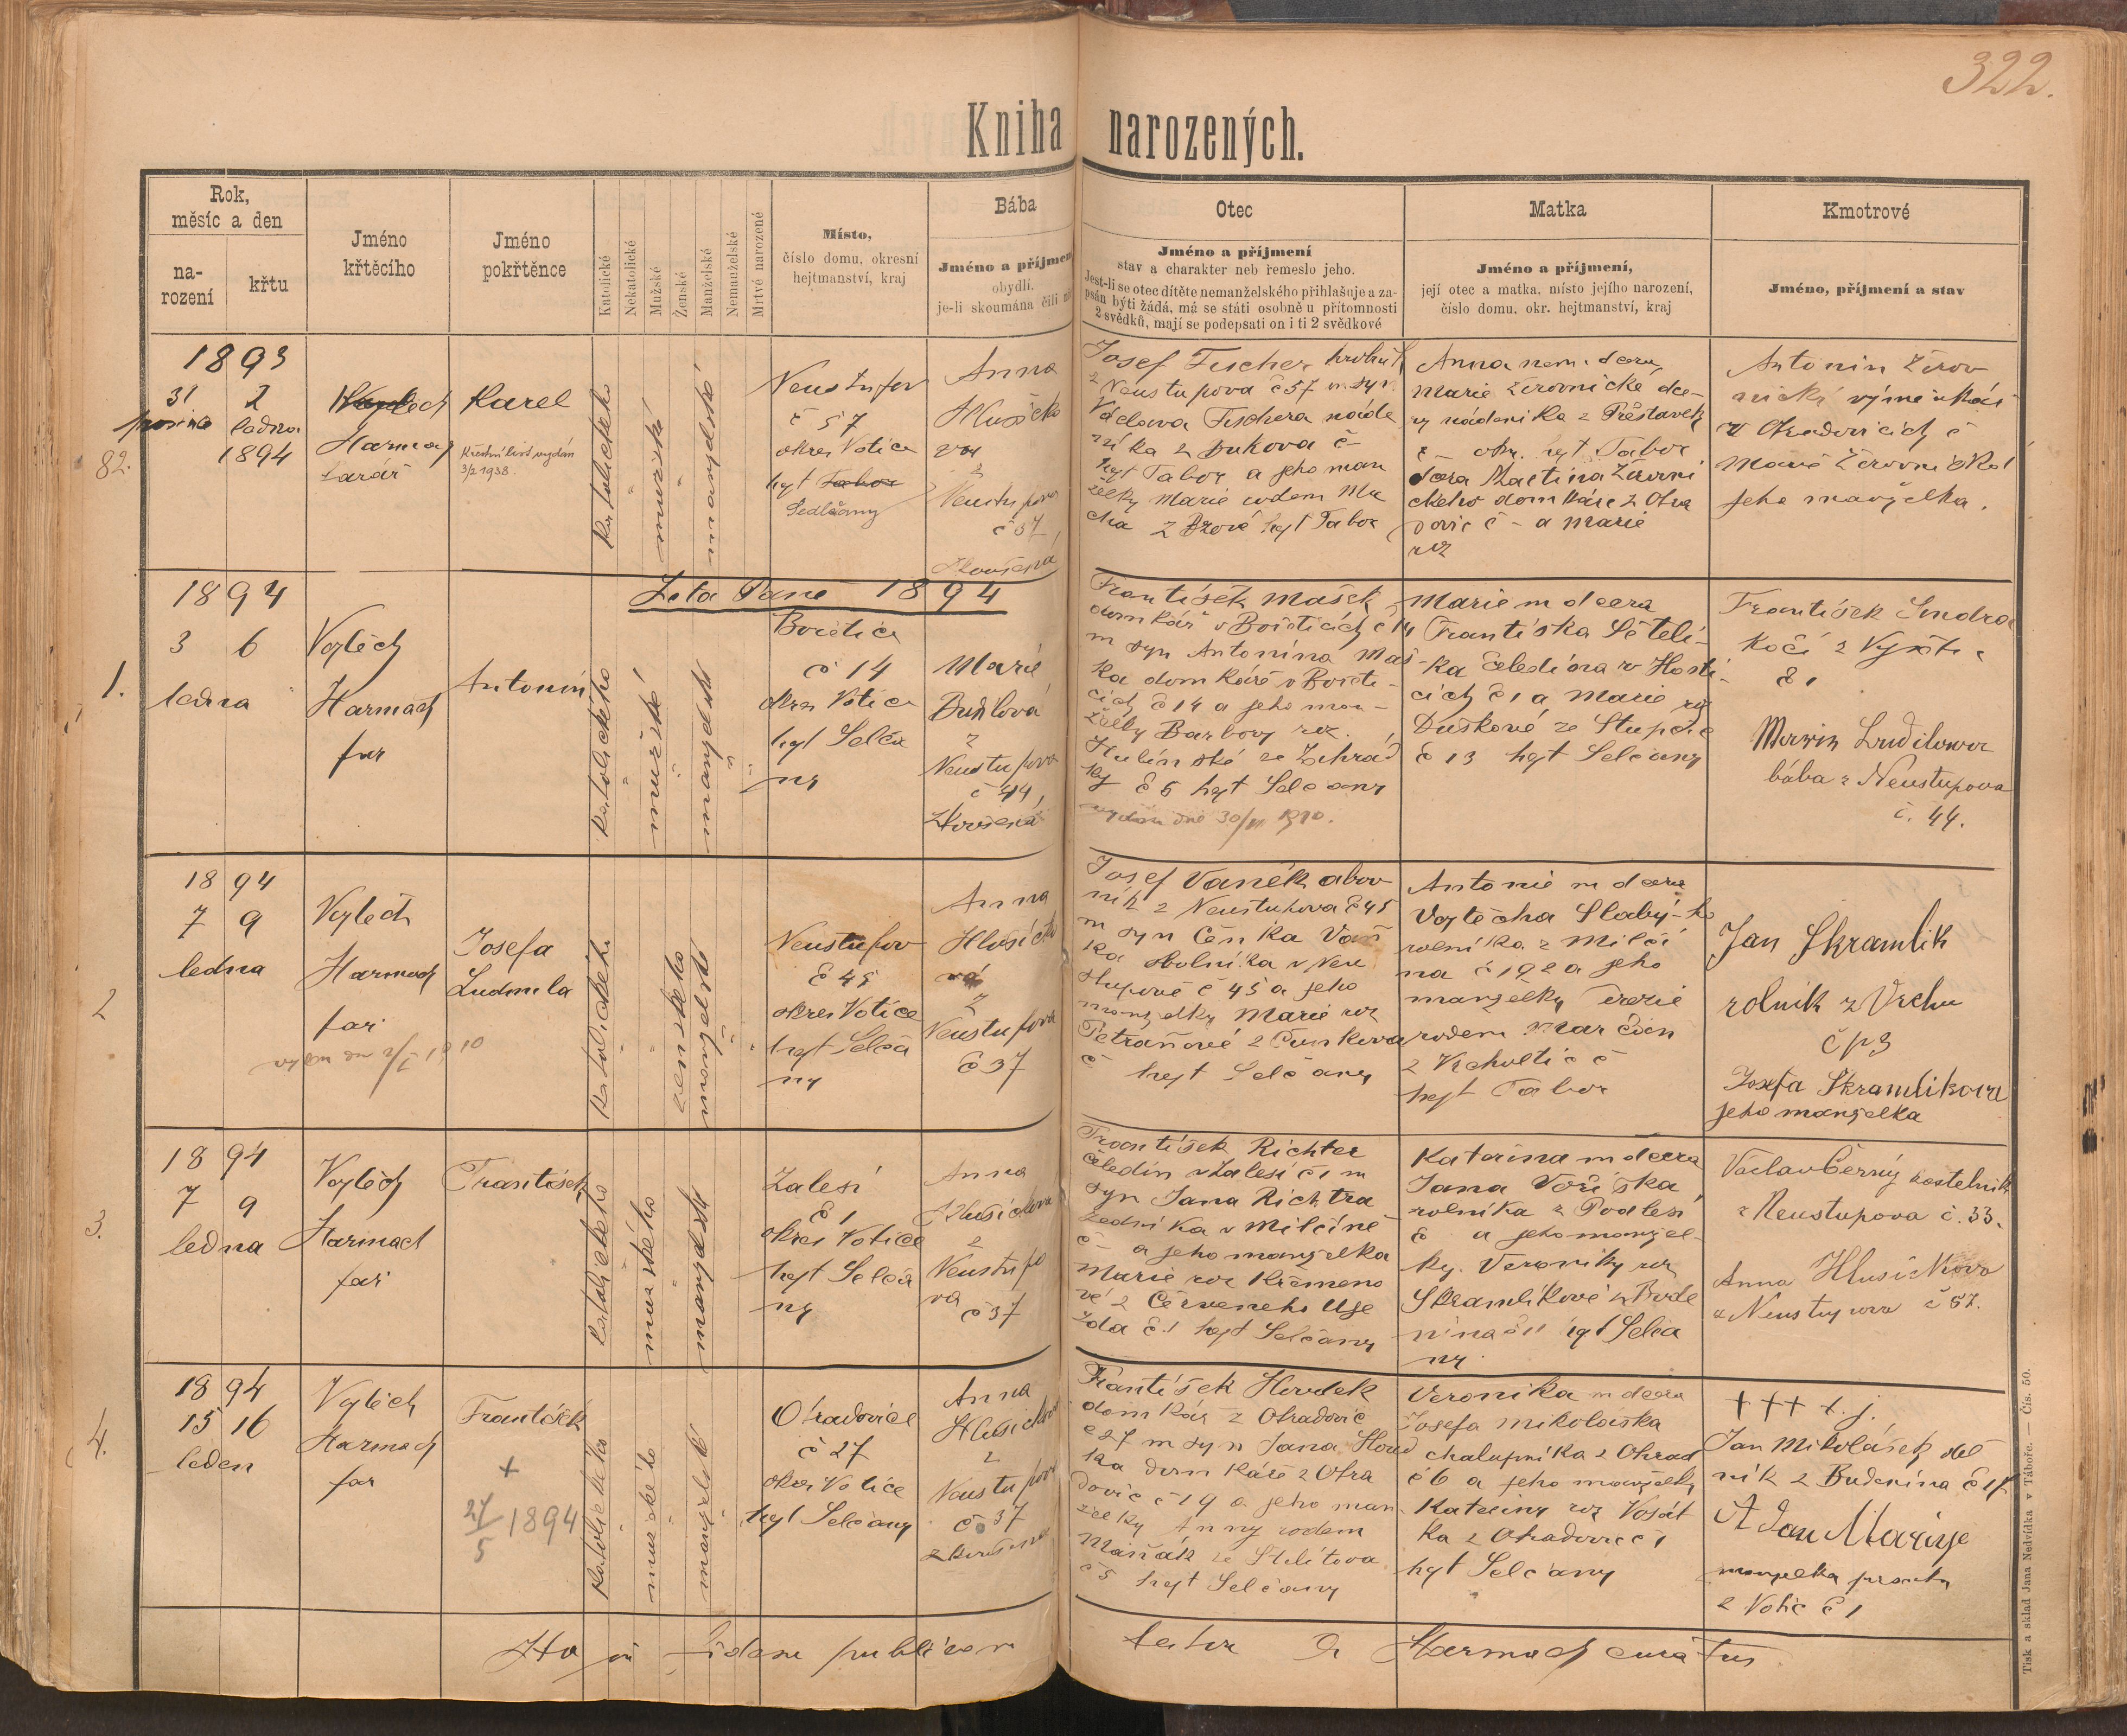 322.
Kniha narozených.
Rok,
měsíc a den
na-
rození
křtu
Jméno
křtěcího
Jméno
pokřtěnce
Katolické
Nekatolické
Mužské
Ženské
Manželské
Nemanželské
Mrtvě narozené
Místo,
číslo domu, okresní
hejtmanství, kraj
Bába
Jméno a příjmen
obydlí.
je-li skoumána čili
Otec
Jméno a příjmení
stav a charakter neb řemeslo jeho.
Jest-li se otec dítěte nemanželského přihlašuje a za-
psán býti žádá, má se státi osobně u přítomnosti
2 svědků, mají se podepsati on i ti 2 svědkové
Matka
Jméno a příjmení,
její otec a matka, místo jejího narození,
číslo domu, okr. hejtmanství, kraj
Kmotrové
Jméno, příjmení a stav
82.
1893
31 2
ledna
1894
Harmach
farář
Karel
Křestní list vydán
3/2 1938.
katolického
mužské
manželské
Neustupov
č 57
okres Votice
hejt Tabor
Sedlčany
Anna
Hlusičko
vá
z
Neustupova
č 37
Josef Fischer
z Neustupova č 57 m. syn
Václava Fischera náde
níka z Dukova č -
hejt Tabor a jeho man
želky Marie rodem Ma
cha z hejt Tabor
Anna nem. dcera
Marie Žirovnické dce-
ry nádeníka z Přestavlk
č - okr. hejt Tabor
dcera Martina Žirovni
ckeho domkáře z Ohra
dovic č - a Marie
roz
Antonín Žirov
nický výměnkář
v Ohradovicích č
Marie Žirovnická
jeho manželka.
Leta Páně 1894
1.
1894
3 6
ledna
Vojtěch
Harmach
far
Antonín
katolického
mužské
manželské
Bořetice
č 14
okres Votice
hejt Selča
ny
Marie
Budilová
z
Neustupova
č 44,
zkoušená
František Mašek
domkář v Bořeticích č 14
m syn Antonína Maš-
ka domkáře v Bořeti-
cích č 14 a jeho man-
želky Barbory roz.
ze Zahrád
ky č 5 hejt Selčany
vydán dne 30/ 1910.
Marie m dcera
Františka Šteli-
ka čeledína v Hosti-
cích č 1 a Marie roz
Duškové ze Stupčic
č 13 hejt Selčany
František Jindra
kočí z
č 1
Budilowa
bába z Neustupova
č. 44.
2
1894
7 9
ledna
Vojtěch
Harmach
far
1910
Josefa
Ludmila
katolického
ženského
manželské
Neustupov
č 45
okres Votice
hejt Selča
ny
Anna
Hlusičko
vá
z
Neustupova
č 37
Josef Vaněk obuv
ník z Neustupova č 45
m syn Čeňka Vaň
ka obolníka v Neu
stupově č 45 a jeho
manželky Marie roz
Petráňové z
č hejt Selčany
Antonie m dcera
Vojtěcha Slabý-ho
rolníka z Milčí
na č 192 a jeho
manželky Terezie
rodem Marčan
z Vrchotic č
hejt Tabor
Jan Skramlik
rolník z Vrchu
čp3
Josefa Skramlikova
jeho manželka
3.
1894
7 9
ledna
Vojtěch
Harmach
far
František
katolického
mužského
manželské
Zalesí
č 1
okres Votice
hejt Selča
ny
Anna
Hlusičkova
z
Neustupo
va č 37
František Richter
čeledín v Zalesí č 1 m
syn Jana Richtra
zedníka v Milčíně
č - a jeho manželka
Marie roz Křemeno
vé z Červeneho Uje
zda č 1 hejt Selčany
Kateřina m dcera
Jana Voříška
rolníka z Podlesí
č a jeho manžel-
ky Veroniky roz
Skramlíkové z Bude
nína č 11 hejt Selča
ny
Václav Černý kostelník
z Neustupova č. 33.
Anna Hlusičkova
z Neustupova č 37.
4.
1894
15 16
leden
Vojtěch
Harmach
far
František
+
27/5 1894
katolického
mužského
manželské
Ohradovice
č 27
okres Votice
hejt Selčany
Anna
Hlusičkova
z
Neustupova
č 37
zkoušena
František Houdek
domkář z Ohradovic
č 27 m syn Jana Houd
ka domkáře z Ohra
dovic č 19 a jeho man
želky Anny rodem
Maňák ze Střelítova
č 5 hejt Selčany
Veronika m dcera
Josefa Mikoláška
chalupníka z Ohrad
č 6 a jeho manželky
Kateřiny roz Vosát
ka z Ohradovic č 1
hejt Selčany
+++ t. j.
Jan Mikolášek děl
ník z Budenína č 17
manželka
z Votic č 1
fidem publicam
Harmach curatus
Tisk a sklad Jana Nedvídka v Táboře. — Čís. 50.